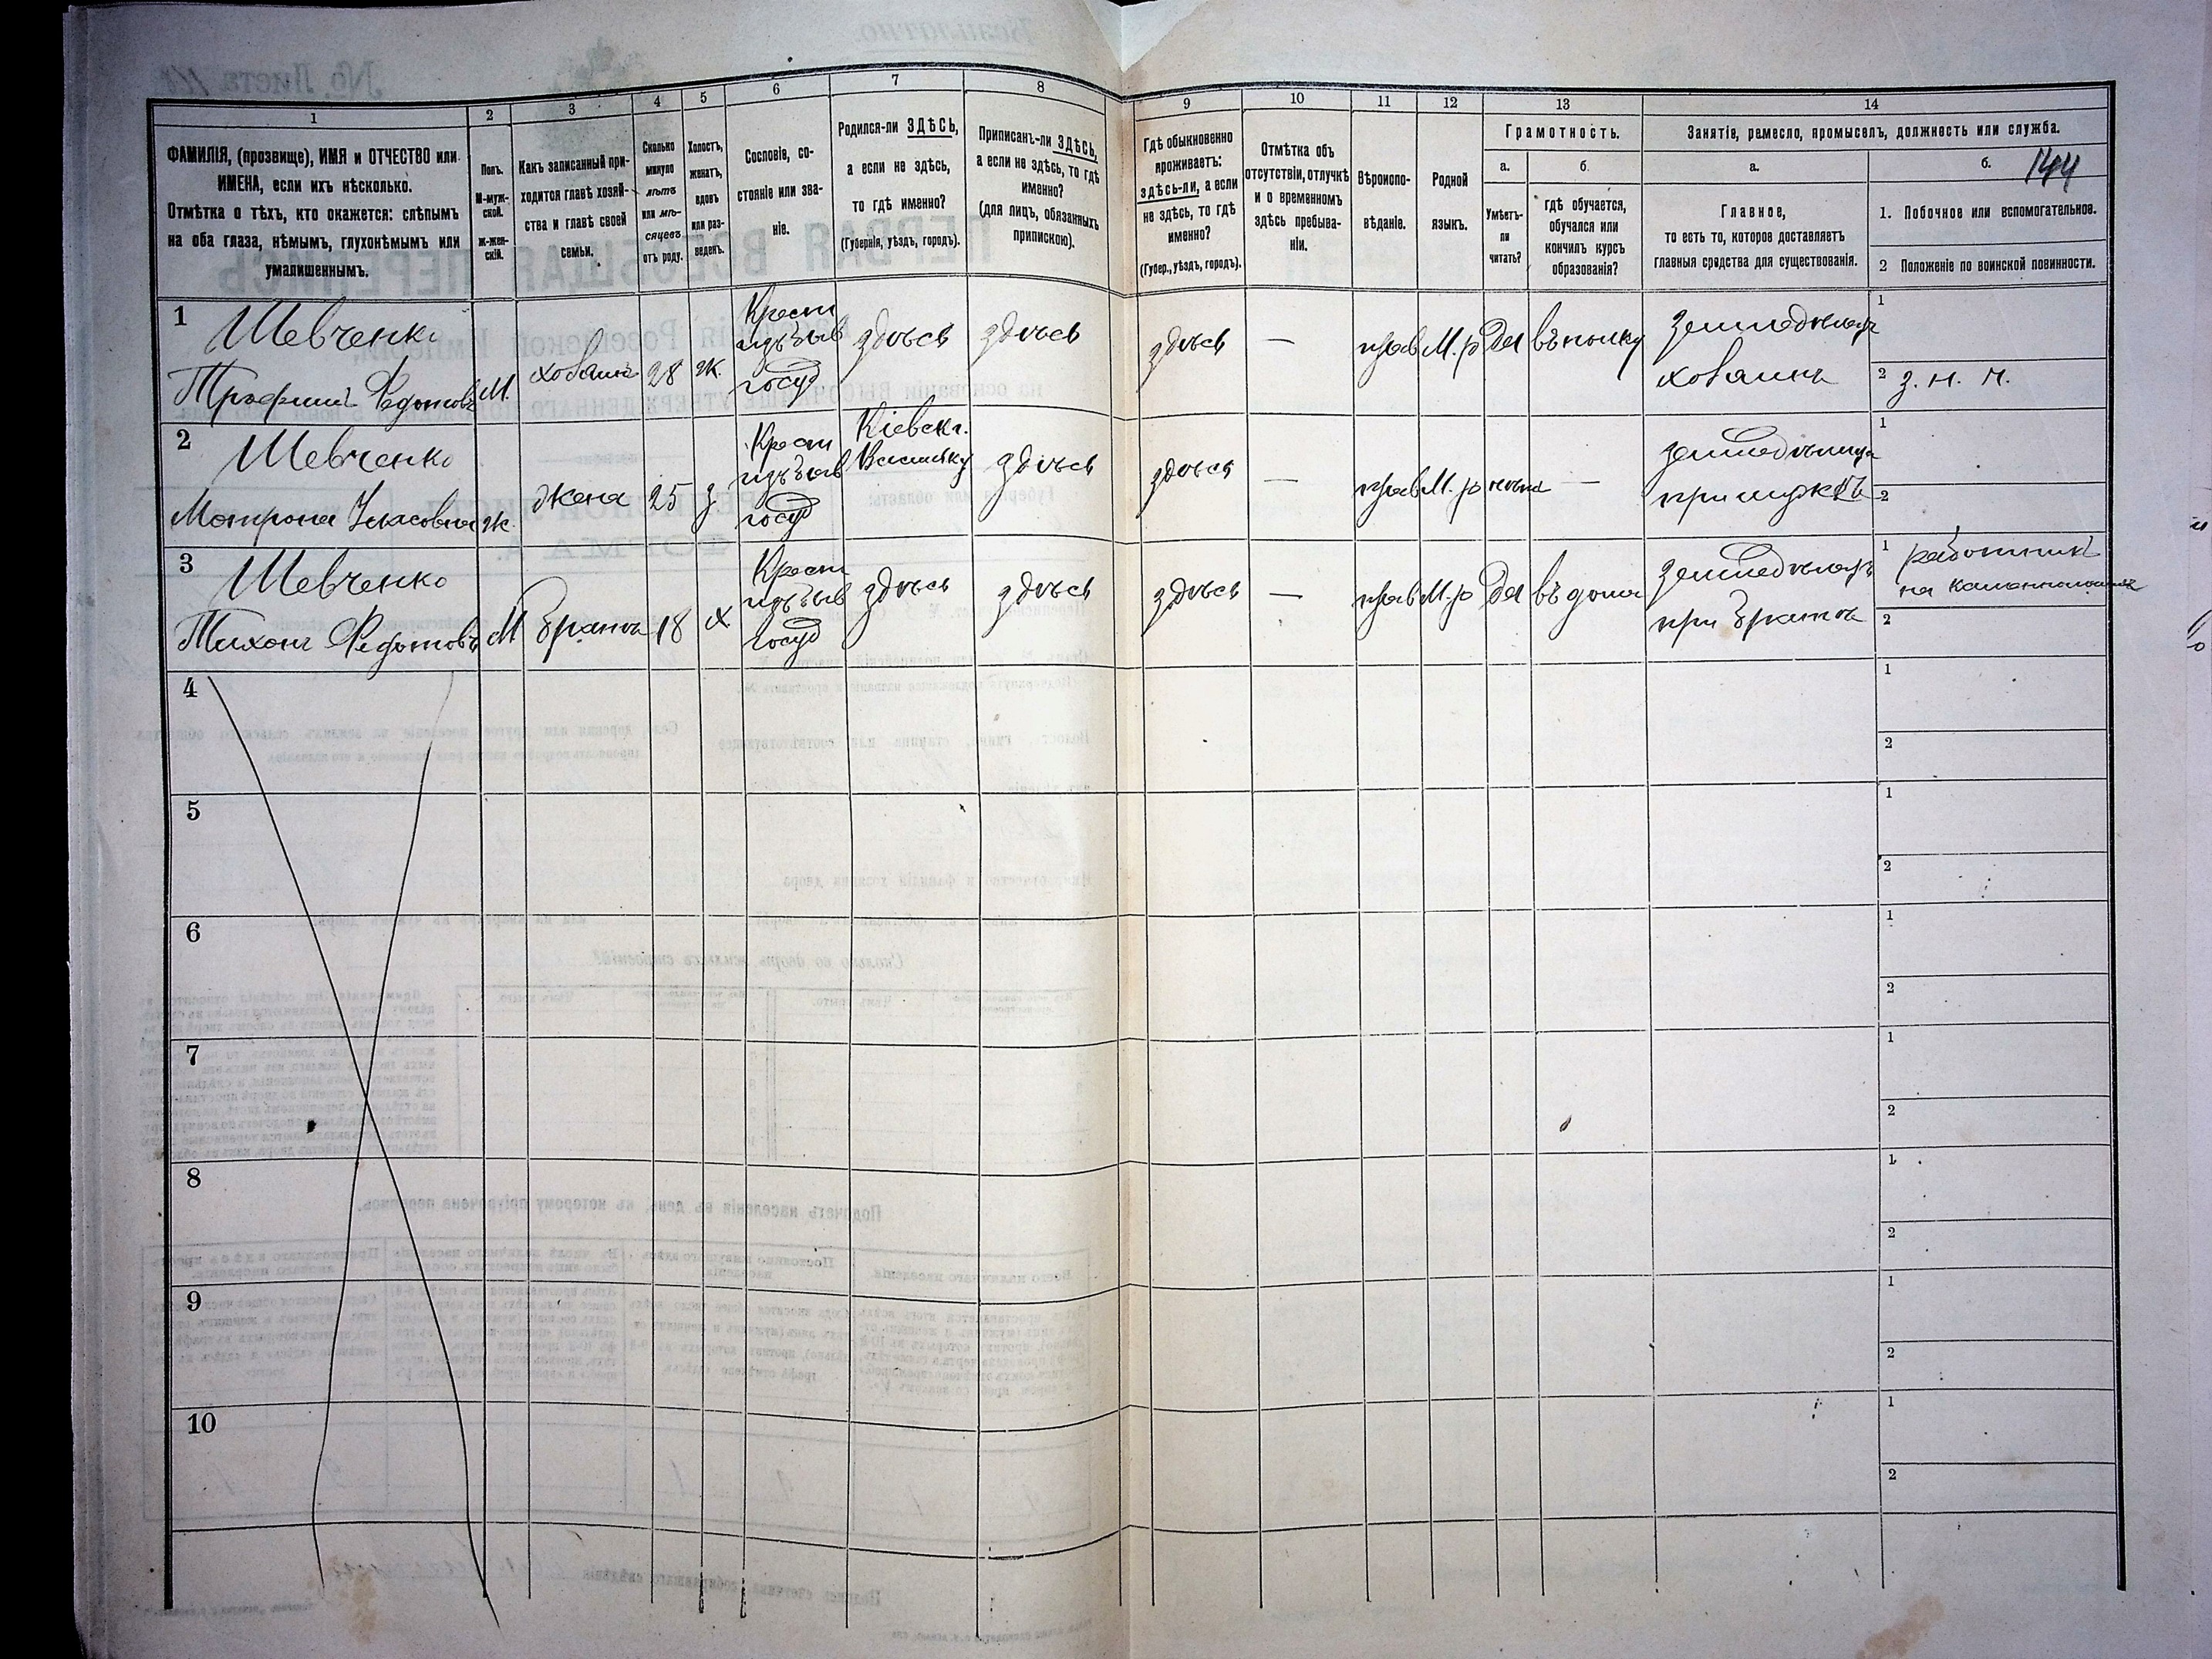 1 2 3 4 5 6 7 8 9 10 11 12 13 14
ФАМИЛІЯ, (прозвище), ИМЯ и ОТЧЕСТВО или
ИМЕНА, если ихъ нѣсколько.
Отмѣтка о тѣхъ, кто окажется: слѣпымъ
на оба глаза, нѣмымъ, глухонѣмымъ или
умалишеннымъ.
Полъ.
М-муж-
ской.
ж-жен-
скій.
Какъ записанный при-
ходится главѣ хозяй-
ства и главѣ своей
семьи.
Сколько
минуло
лѣтъ
или мѣ-
сяцевъ
отъ роду.
Холостъ,
женатъ,
вдовъ
или раз-
веденъ.
Сословіе, со-
стояніе или зва-
ніе.
Родился-ли ЗДѢСЬ,
а если не здѣсь,
то гдѣ именно?
(Губернія, уѣздъ, городъ).
Приписанъ-ли ЗДѢСЬ,
а если не здѣсь, то гдѣ
именно?
(для лицъ, обязанныхъ
припискою).
Гдѣ обыкновенно
проживаетъ:
здѣсь-ли, а если
не здѣсь, то гдѣ
именно?
(Губер., уѣздъ, городъ).
Отмѣтка объ
отсутствіи, отлучкѣ
и о временномъ
здѣсь пребыва-
ніи.
Вѣроиспо-
вѣданіе.
Родной
языкъ.
Грамотность.
а.
Умѣетъ-
ли
читать?
б.
гдѣ обучается,
обучался или
кончилъ курсъ
образованія?
Занятіе, ремесло, промыселъ, должность или служба.
а.
Главное,
то есть то, которое доставляетъ
главныя средства для существованія.
б.
144
1. Побочное или вспомогательное.
2 Положеніе по воинской повинности.
1 Шевченко
Трофимъ Федотовъ М. хозаинъ 28 ж. Крест изъ быв госуд здѣсь здѣсь здѣсь — прав М. р да въ полку земледѣлецъ хозаинъ
1
2 з. н. ч.
2 Шевченко
Матрона Уласовна ж. жена 25 з Крест изъ быв госуд Кіевск. здѣсь здѣсь — прав М. р — при мужѣ
1
2
3 Шевченко
Тихонъ Федотовъ М братъ 18 х Крест изъ быв госуд здѣсь здѣсь здѣсь — прав М. р да въ дома земледѣлецъ при братѣ
1 работникъ
на
2
4
1
2
5
1
2
6
1
2
7
1
2
8
1
2
9
1
2
10
1
2